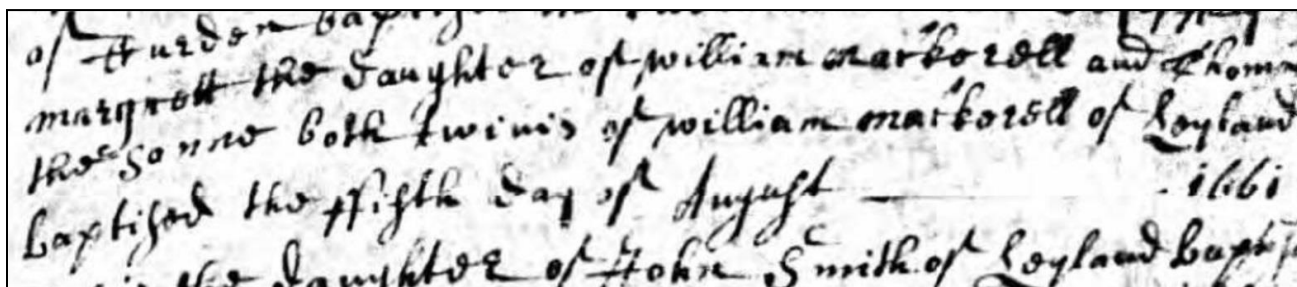 of ffurden baptized
margrett the daughter of william markorell and Thom
the sonne both twinis of william markorell of Leyland
baptized the ffifth day of August 1661
the daughter of John Smith of Leyland bapti